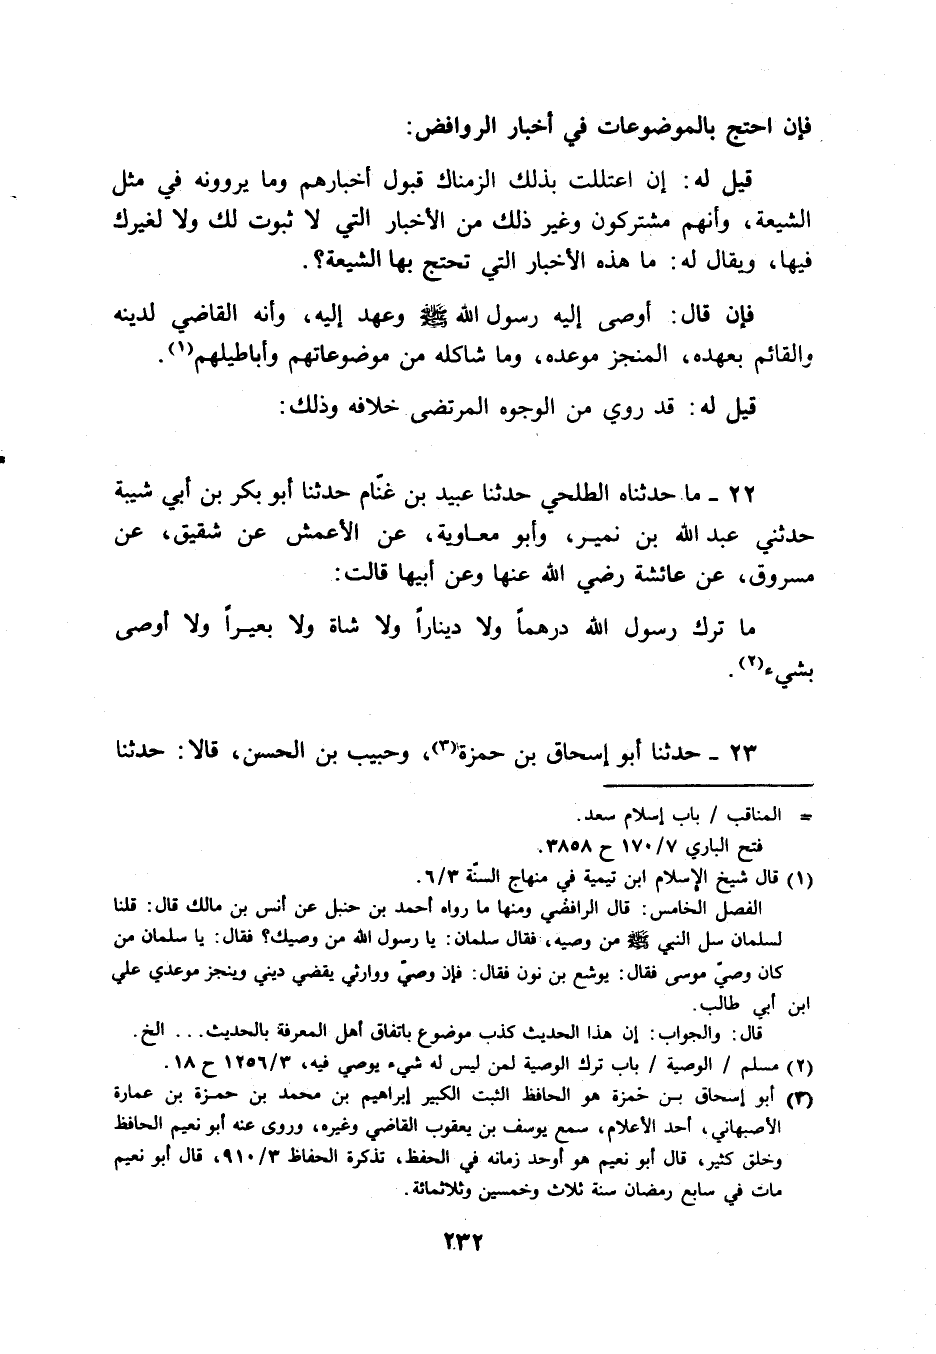 فإن احتج بالموضوعات في أخبار الروافض:
قيل له: إن اعتللت بذلك الزمناك قبول أخبارهم وما يروونه في مثل
الشيعة، وأنهم مشتركون وغير ذلك من الأخبار التي لا ثبوت لك ولا لغيرك
فيها، ويقال له: ما هذه الأخبار التي تحتج بها الشيعة؟.
فإن قال: أوصى إليه رسول الله ﷺ وعهد إليه، وأنه القاضي لدينه
والقائم بعهده، المنجز موعده، وما شاكله من موضوعاتهم وأباطيلهم(١).
قيل له: قد روي من الوجوه المرتضى خلافه وذلك:
٢٢ ـ ما حدثناه الطلحي حدثنا عبيد بن غنّام حدثنا أبو بكر بن أبي شيبة
حدثني عبد الله بن نميـر، وأبو معـاوية، عن الأعمش عن شقيق، عن
مسروق، عن عائشة رضي الله عنها وعن أبيها قالت:
ما ترك رسول الله درهماً ولا ديناراً ولا شاة ولا بعيـراً ولا أوصى
بشيء(٢).
٢٣ ـ حدثنا أبو إسحاق بن حمزة(٣)، وحبيب بن الحسن، قالا: حدثنا
= المناقب / باب إسلام سعد.
فتح الباري ١٧٠/٧ ح ٣٨٥٨.
(١) قال شيخ الإسلام ابن تيمية في منهاج السنّة ٦/٣.
الفصل الخامس: قال الرافضي ومنها ما رواه أحمد بن حنبل عن أنس بن مالك قال: قلنا
لسلمان سل النبي ﷺ من وصيه، فقال سلمان: يا رسول الله من وصيك؟ فقال: يا سلمان من
كان وصيّ موسى فقال: يوشع بن نون فقال: فإن وصيّ ووارثي يقضي ديني وينجز موعدي علي
ابن أبي طالب.
قال: والجواب: إن هذا الحديث كذب موضوع باتفاق أهل المعرفة بالحديث... الخ.
(٢) مسلم / الوصية / باب ترك الوصية لمن ليس له شيء يوصي فيه، ١٢٥٦/٣ ح ١٨.
(٣) أبو إسحاق بـن حمزة هو الحافظ الثبت الكبير إبراهيم بن محمد بن حمـزة بن عمارة
الأصبهاني، أحد الأعلام، سمع يوسف بن يعقوب القاضي وغيره، وروى عنه أبو نعيم الحافظ
وخلق كثير، قال أبو نعيم هو أوحد زمانه في الحفظ، تذكرة الحفاظ ٩١٠/٣، قال أبو نعيم
مات في سابع رمضان سنة ثلاث وخمسين وثلاثمائة.
٢٣٢